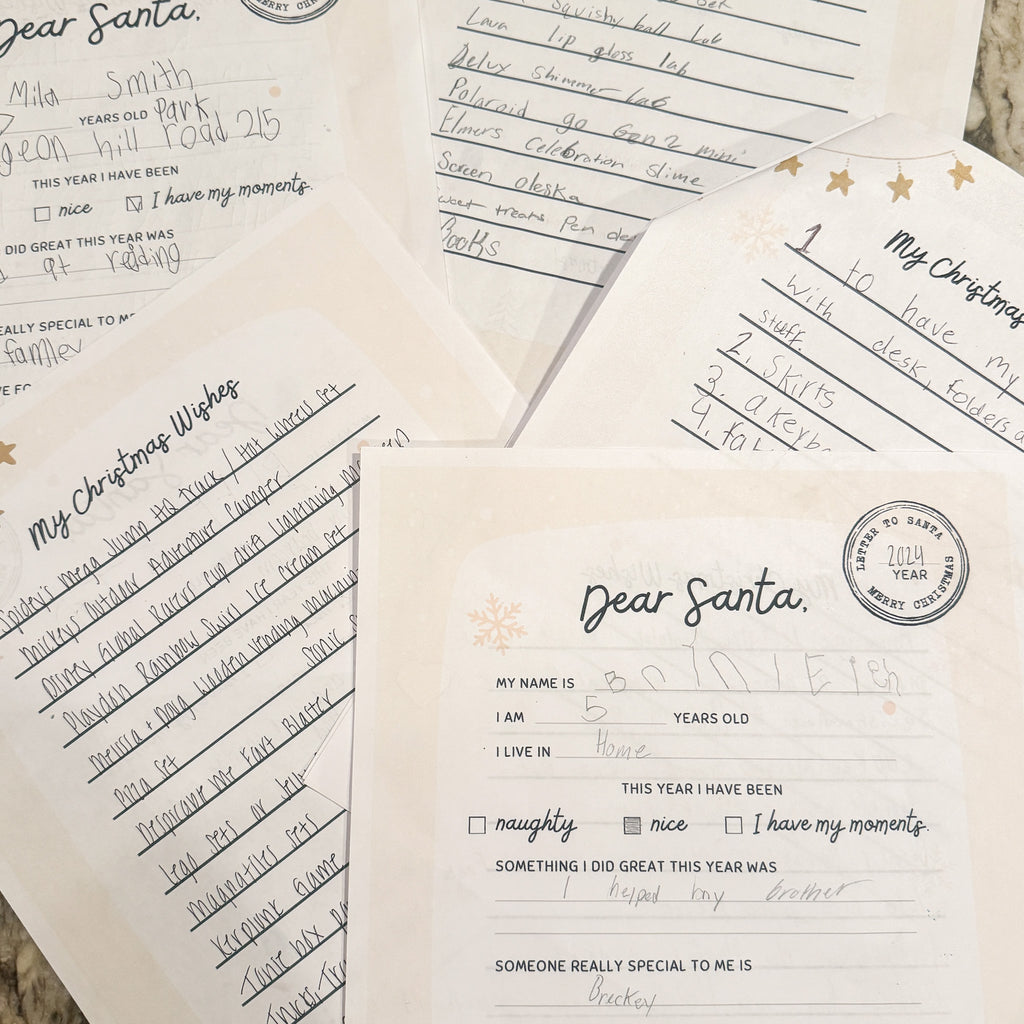 Dear Santa,
MERRY CHRIS
Mila Smith
YEARS OLD Park
geon hill road 215
THIS YEAR I HAVE BEEN
nice I have my moments.
DID GREAT THIS YEAR WAS
at reiding
EALLY SPECIAL TO ME
famlev
VE FO
Squishy ball lab
Lava lip gloss lab
Delux shimmer lab
Polaroid go Gen 2 mini
Elmers celebration slime
Screen oleska
sweet treats Pen de
Books
My Christmas
1 to have my
with desk, folders a
stuff.
2. Skirts
3. a Keyb
4. fa
My Christmas Wishes
Spidey's Mega Jump HQ track / Hot Wheels set
Mickeys Outdoor Adventure Camper
Disney Global Racers cup drift lightning
Playdoh Rainbow Swirl Ice cream set
Melissa + Doug Wooden Vending
Pizza set Sonic
Despicable Me Fart Blaster
Lego sets
Magnatiles sets
Kerplunk Game
Tonie box
LETTER TO SANTA
2024
YEAR
MERRY CHRISTMAS
Dear Santa,
MY NAME IS
I AM 5 YEARS OLD
I LIVE IN Home
THIS YEAR I HAVE BEEN
naughty nice I have my moments.
SOMETHING I DID GREAT THIS YEAR WAS
I helped my brother
SOMEONE REALLY SPECIAL TO ME IS
Breckey